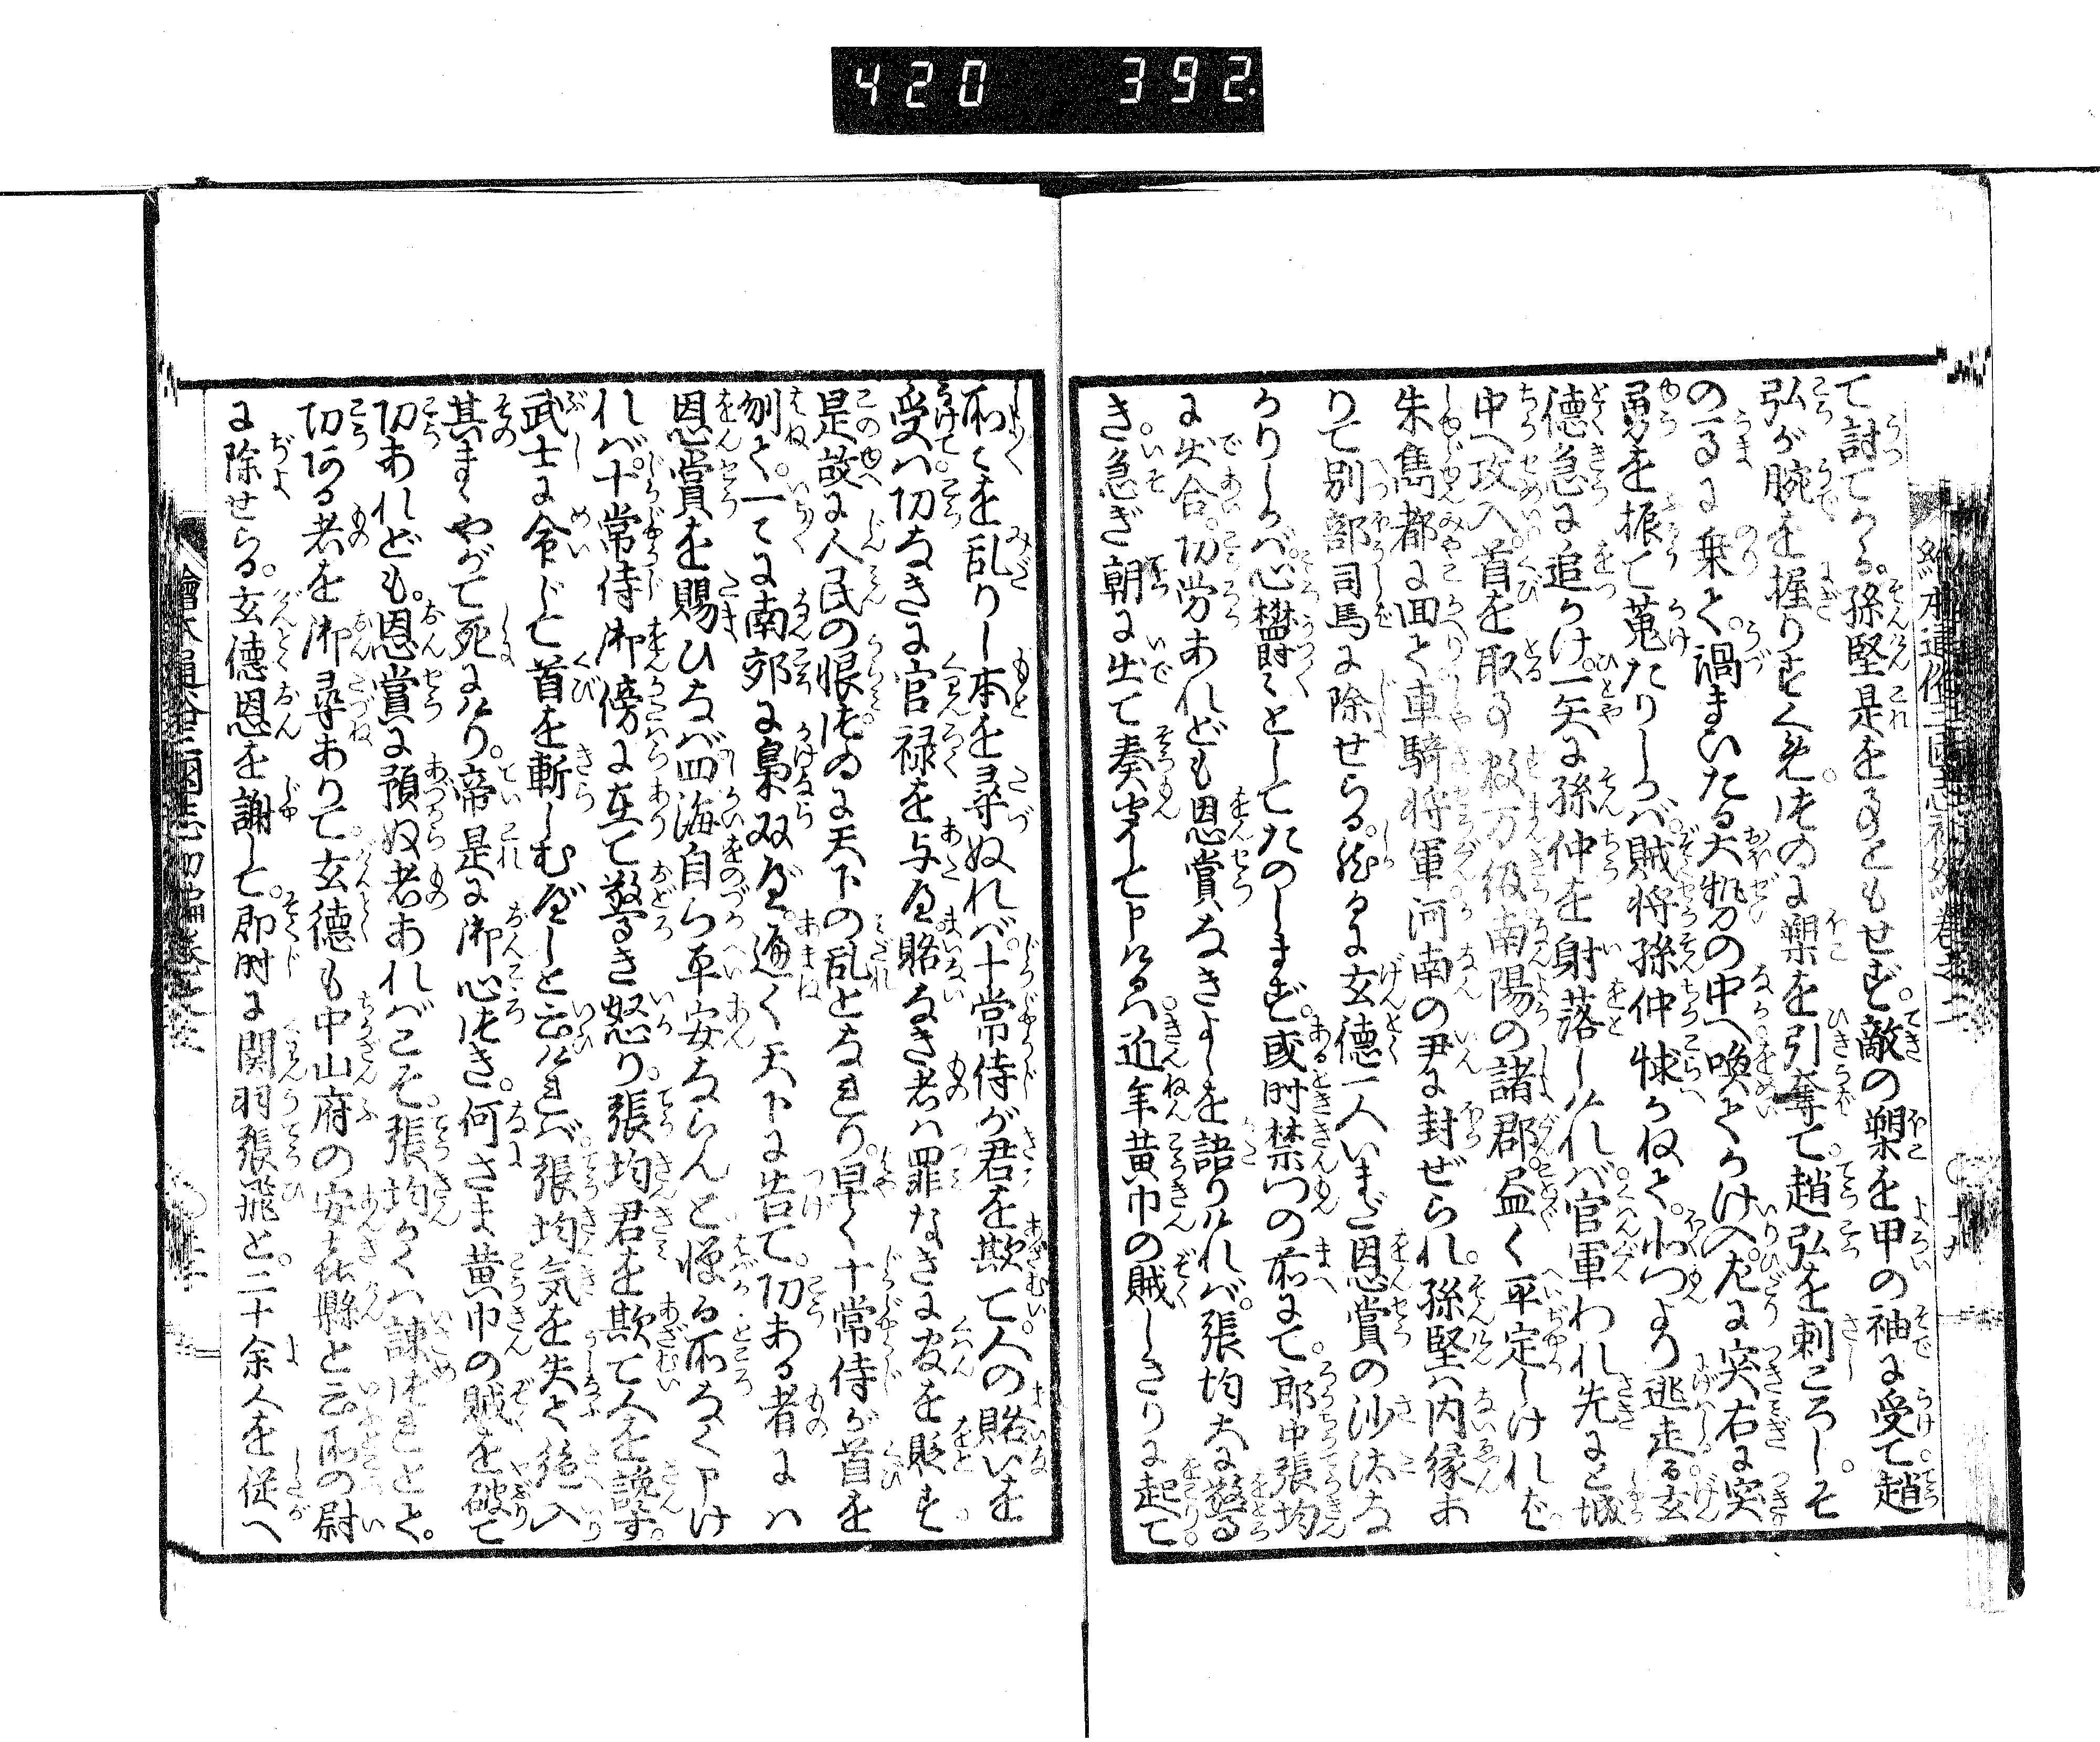 420 392.
て討てかゝる。孫堅是をものともせず。敵の槊を甲の袖に受て趙
弘が腕を握りすくめ。その槊を引奪て。趙弘を刺ころし。そ
の馬に乗て。渦まいたる大勢の中へ喚てかけ入。左に突右に突
勇を振て蒐たりしかば。賊将孫仲怺かねて。北門より逃走る玄
徳急に追かけ。一矢に孫仲を射落しければ官軍われ先にと城
中へ攻入。首を取事数万級南陽の諸郡。盡く平定しければ。
朱雋都に回て車騎将軍河南の尹に封ぜられ。孫堅は内縁あ
りて別部司馬に除せらる。然るに玄徳一人いまだ恩賞の沙汰な
かりしかば。心欝々としてたのしまず。或時禁門の前にて。郎中張均
に出合。功労あれども恩賞なきよしを語りければ。張均大に驚
き。急ぎ朝に出て奏聞して申けるは。近年黄巾の賊しきりに起て
所々を乱りし本を尋ぬれば。十常侍が君を欺て。人の賂いを
受て。功なきに官禄を与へ。賂なき者は罪なきに官を貶す
是故に人民の恨つゐに天下の乱となれり。早く十常侍が首を
刎て。一々に南郊に梟双べ。遍く天下に告て。功ある者には
恩賞を賜ひなば四海自ら平安ならんと憚る所なく申け
れば。十常侍御傍に在て驚き怒り。張均君を欺て人を讒す。
武士に令じて首を斬しむべしと云ければ。張均気を失て絶入
其まゝやがて死にけり。帝是に御心つき。何さま黄巾の賊を破て
功あれども。恩賞に預ぬ者あればこそ。張均かくは諌つれとて。
功ある者を御尋ありて。玄徳も中山府の安喜縣と云所の尉
に除せらる。玄徳恩を謝して。即時に関羽張飛と。二十余人を従へ